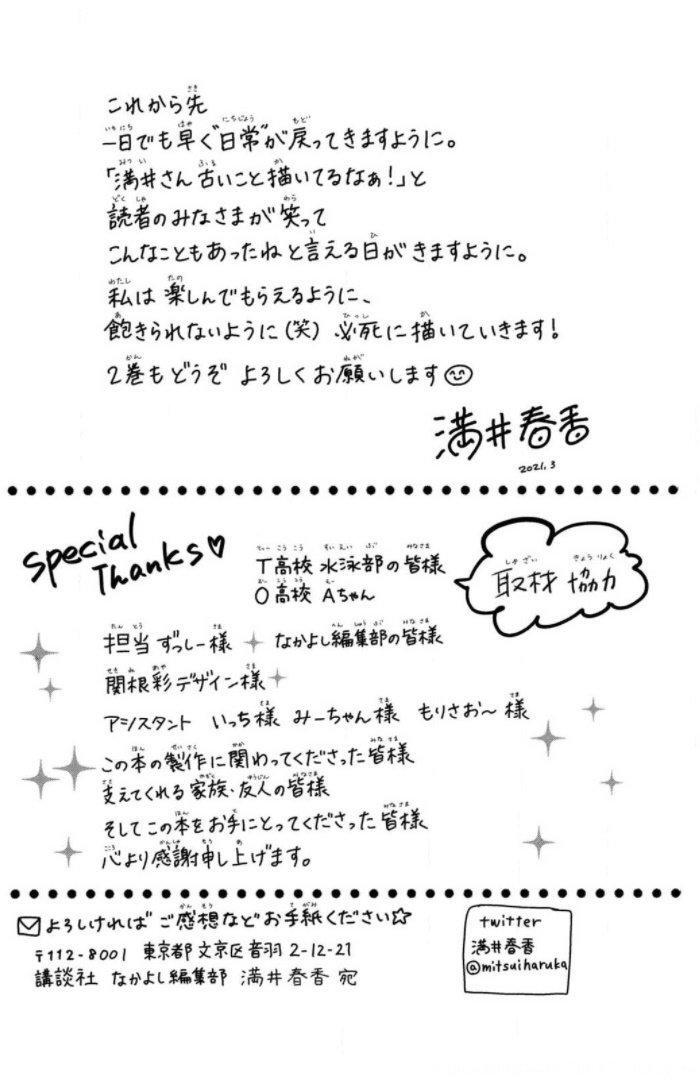 これから先
一日でも早く"日常"が戻ってきますように。
「満井さん古いこと描いてるなぁ!」と
読者のみなさまが笑って
こんなこともあったねと言える日がきますように。
私は楽しんでもらえるように、
飽きられないように(笑)必死に描いていきます!
2巻もどうぞ よろしくお願いします
満井春香
2021.3
Special Thanks♡
T高校 水泳部の皆様
O高校 Aちゃん
取材 協力
担当 ずっしー様 なかよし編集部の皆様
関根彩デザイン様
アシスタント いっち様 みーちゃん様 もりさお〜様
この本の製作に関わってくださった皆様
支えてくれる家族・友人の皆様
そしてこの本をお手にとってくださった皆様
心より感謝申し上げます。
よろしければご感想などお手紙ください☆
〒112-8001 東京都文京区音羽2-12-21
講談社 なかよし編集部 満井春香 宛
twitter
満井春香
@mitsuiharuka